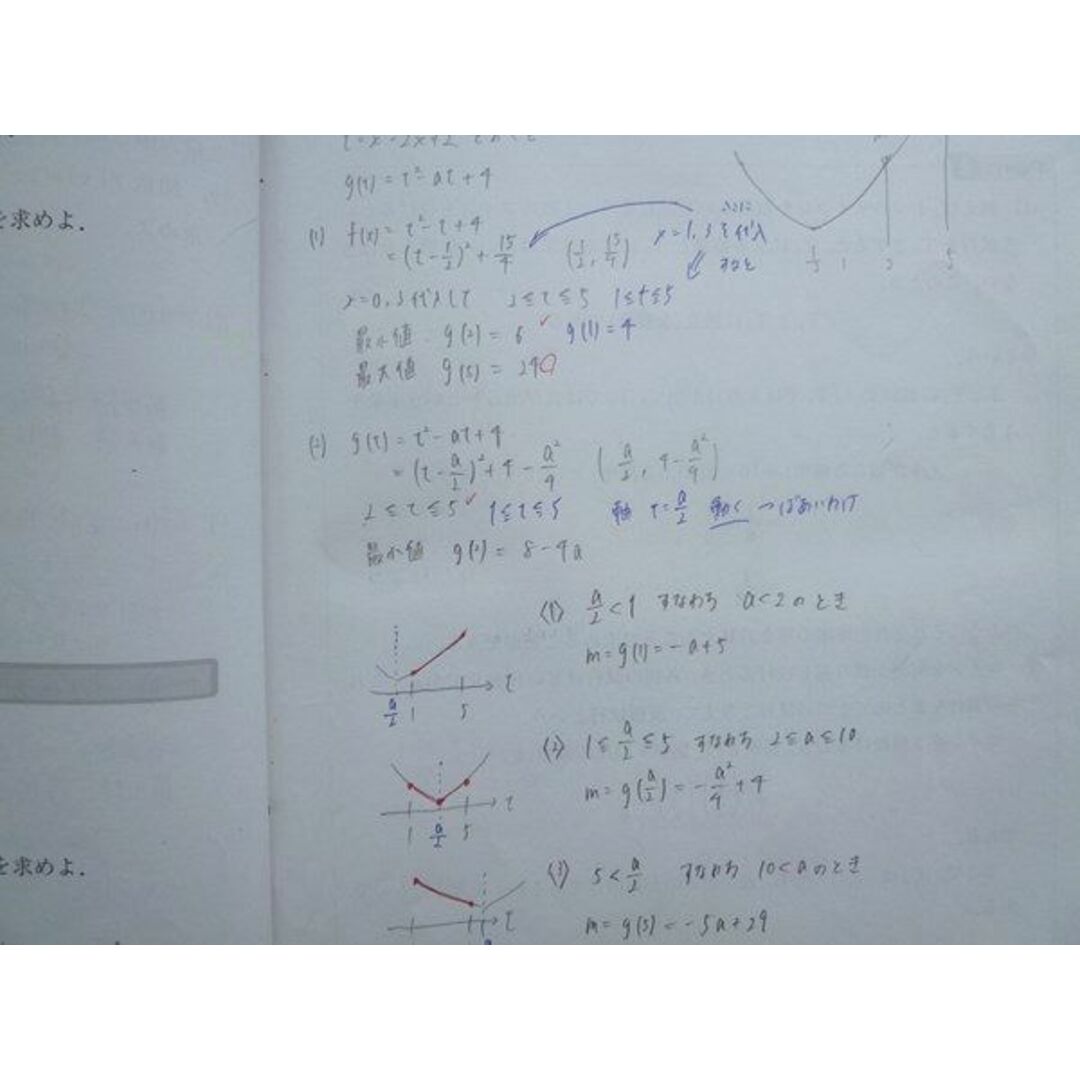 を求めよ.
を求めよ.
g(t) = t² - at + 4
(1) f(x) = t² - t + 4
= (t - 1/2)² + 15/4 (1/2, 15/4) x = 1, 3 を代入
x = 0, 3 代入して 2 ≤ t ≤ 5 1 ≤ t ≤ 5
最小値 g(2) = 6 ✓ g(1) = 4
最大値 g(5) = 24
1/2 1 2 5
(2) g(t) = t² - at + 4
= (t - a/2)² + 4 - a²/4 (a/2, 4 - a²/4)
2 ≤ t ≤ 5 ✓ 1 ≤ t ≤ 5 軸 t = a/2 動く →ばあいわけ
最小値 g(2) = 8 - 4a
〈1〉 a/2 < 1 すなわち a < 2 のとき
m = g(1) = -a + 5
a/2 1 5 t
〈2〉 1 ≤ a/2 ≤ 5 すなわち 2 ≤ a ≤ 10
m = g(a/2) = -a²/4 + 4
1 a/2 5 t
〈3〉 5 < a/2 すなわち 10 < a のとき
m = g(5) = -5a + 29
t